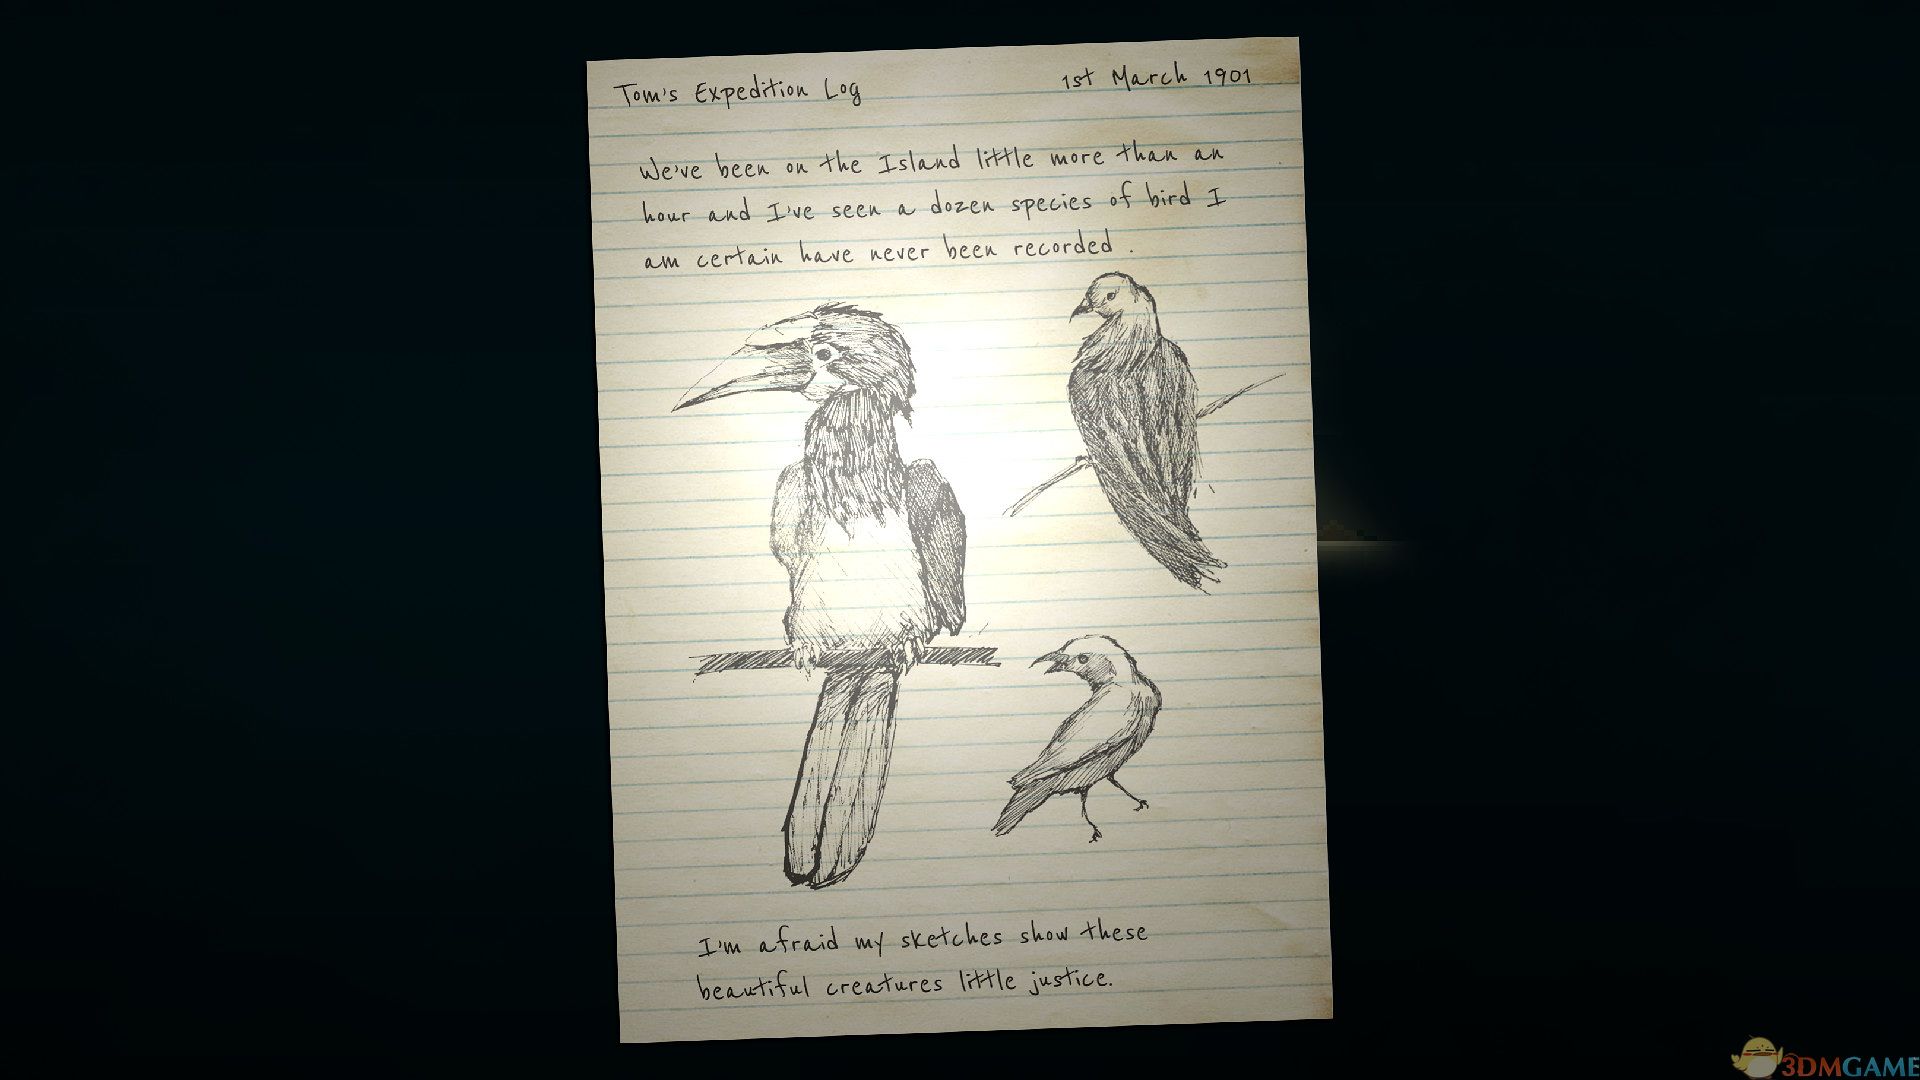 Tom's Expedition Log
1st March 1901
We've been on the Island little more than an
hour and I've seen a dozen species of bird I
am certain have never been recorded.
I'm afraid my sketches show these
beautiful creatures little justice.
3DMGAME